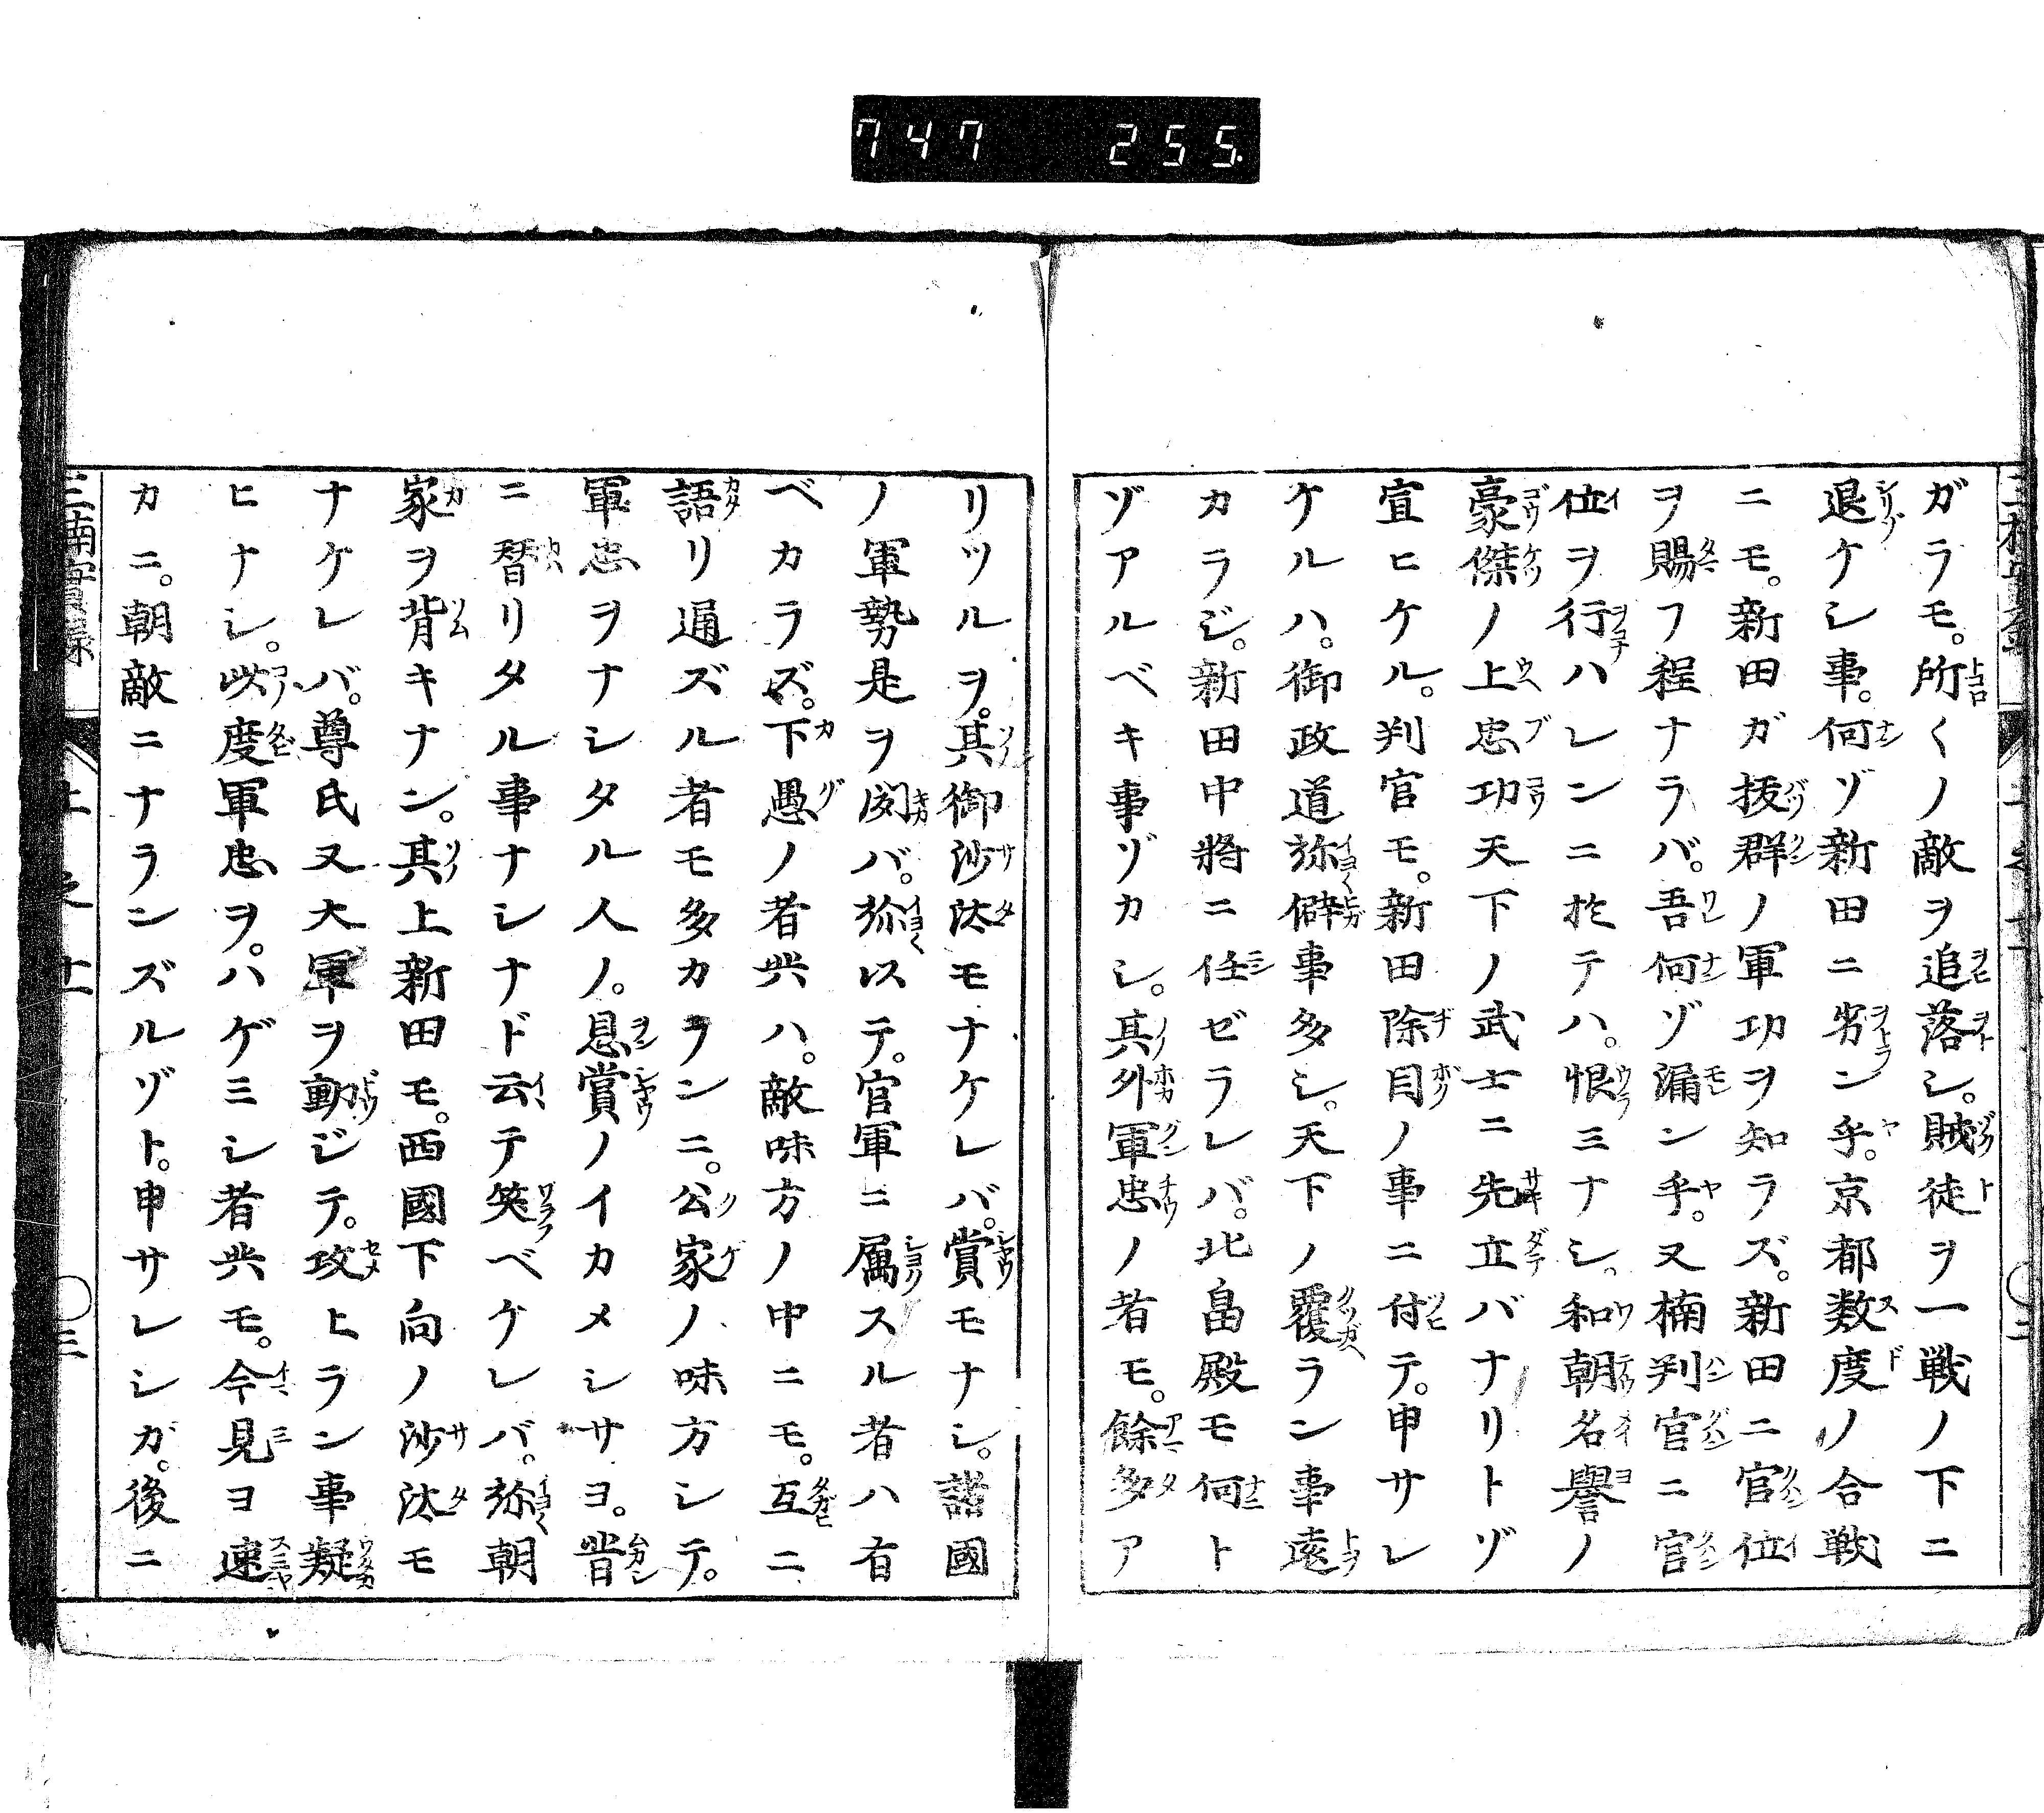 747 255
ガラモ。所〱ノ敵ヲ追落シ。賊徒ヲ一戦ノ下ニ
退ケシ事。何ゾ新田ニ劣ン乎。京都数度ノ合戦
ニモ。新田ガ抜群ノ軍功ヲ知ラズ。新田ニ官位
ヲ賜フ程ナラバ。吾何ゾ漏ン乎。又楠判官ニ官
位ヲ行ハレンニ於テハ。恨ミナシ。和朝名譽ノ
豪傑ノ上忠功天下ノ武士ニ先立バナリトゾ
宣ヒケル。判官モ。新田除目ノ事ニ付テ。申サレ
ケルハ。御政道弥僻事多シ。天下ノ覆ラン事遠
カラジ。新田中將ニ任ゼラレバ。北畠殿モ何ト
ゾアルベキ事ゾカシ。其外軍忠ノ者モ。餘多ア
リツルヲ。其御沙汰モナケレバ。賞モナシ。諸國
ノ軍勢是ヲ聞バ。弥以テ。官軍ニ属スル者ハ有
ベカラズ。下愚ノ者共ハ。敵味方ノ中ニモ。互ニ
語リ通ズル者モ多カランニ。公家ノ味方シテ。
軍忠ヲナシタル人ノ。恩賞ノイカメシサヨ。昔
ニ替リタル事ナシナド云テ笑ベケレバ。弥朝
家ヲ背キナン。其上新田モ。西國下向ノ沙汰モ
ナケレバ。尊氏又大軍ヲ動ジテ。攻ヒラン事疑
ヒナシ。此度軍忠ヲ。ハゲミシ者共モ。今見ヨ速
カニ。朝敵ニナランズルゾト。申サレシガ。後ニ